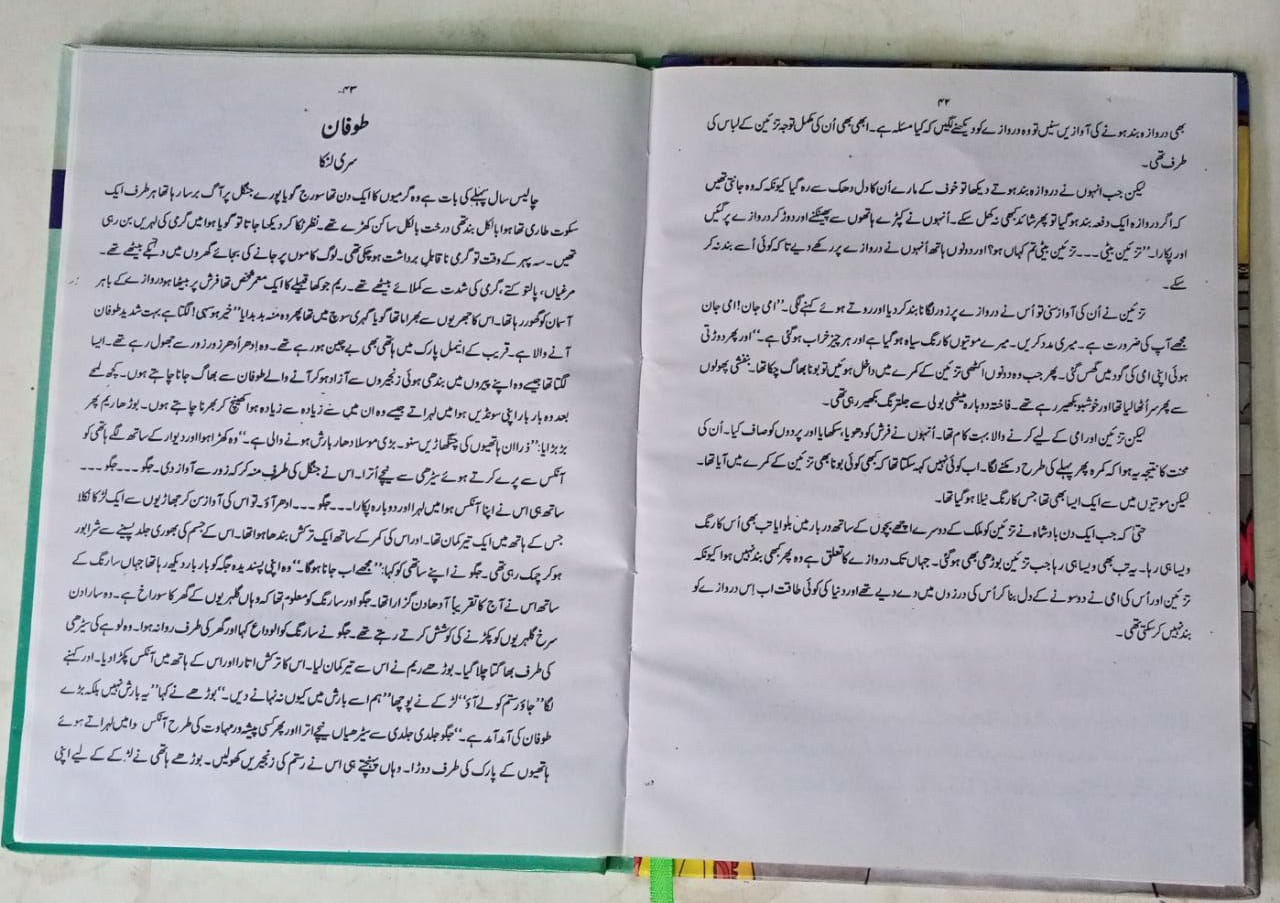 ۴۲
بھی دروازہ بند ہونے کی آوازیں سنیں تو وہ دروازے کو دیکھنے لگیں کہ کیا مسئلہ ہے۔ ابھی بھی اُن کی مکمل توجہ تزئین کے لباس کی
طرف تھی۔
لیکن جب انہوں نے دروازہ بند ہوتے دیکھا تو خوف کے مارے اُن کا دل دھک سے رہ گیا کیونکہ کہ وہ جانتی تھیں
کہ اگر دروازہ ایک دفعہ بند ہو گیا تو پھر شائد کبھی نہ کھل سکے۔ اُنہوں نے کپڑے ہاتھوں سے پھینکے اور دوڑ کر دروازے پر گئیں
اور پکارا۔ ”تزئین بیٹی ۔۔۔ تزئین بیٹی تم کہاں ہو؟ اور دونوں ہاتھ اُنہوں نے دروازے پر رکھے دیے تا کہ کوئی اُسے بند نہ کر
سکے۔
تزئین نے اُن کی آواز سنی تو اُس نے دروازے پر زور لگانا بند کر دیا اور روتے ہوئے کہنے لگی۔ ”امی جان! امی جان
مجھے آپ کی ضرورت ہے۔ میری مدد کریں۔ میرے موتیوں کا رنگ سیاہ ہو گیا ہے اور ہر چیز خراب ہو گئی ہے۔“ اور پھر دوڑتی
ہوئی اپنی امی کی گود میں گھس گئی۔ پھر جب وہ دونوں اکٹھی تزئین کے کمرے میں داخل ہوئیں تو بونا بھاگ چکا تھا۔ بنفشی پھولوں
سے پھر سر اُٹھا لیا تھا اور خوشبو بکھیر رہے تھے۔ فاختہ دوبارہ میٹھی بولی سے جلترنگ بکھیر رہی تھی۔
لیکن تزئین اور امی کے لیے کرنے والا بہت کام تھا۔ اُنہوں نے فرش کو دھویا، سکھایا اور پردوں کو صاف کیا۔ اُن کی
محنت کا نتیجہ یہ ہوا کہ کمرہ پھر پہلے کی طرح دمکنے لگا۔ اب کوئی نہیں کہہ سکتا تھا کہ کبھی کوئی بونا بھی تزئین کے کمرے میں آیا تھا۔
لیکن موتیوں میں سے ایک ایسا بھی تھا جس کا رنگ نیلا ہو گیا تھا۔
حتیٰ کہ جب ایک دن بادشاہ نے تزئین کو ملک کے دوسرے اچھے بچوں کے ساتھ دربار میں بلوایا تب بھی اُس کا رنگ
ویسا ہی رہا۔ یہ تب بھی ویسا ہی رہا جب تزئین بوڑھی بھی ہو گئی۔ جہاں تک دروازے کا تعلق ہے وہ پھر کبھی بند نہیں ہوا کیونکہ
تزئین اور اُس کی امی نے دو سونے کے دل بنا کر اُس کی درزوں میں دے دیے تھے اور دنیا کی کوئی طاقت اب اِس دروازے کو
بند نہیں کر سکتی تھی۔
۴۳
طوفان
سری لنکا
چالیس سال پہلے کی بات ہے وہ گرمیوں کا ایک دن تھا سورج گویا پورے جنگل پر آگ برسا رہا تھا ہر طرف ایک
سکوت طاری تھا ہوا بالکل بند تھی درخت بالکل ساکن کھڑے تھے۔ نظر ٹکا کر دیکھا جاتا تو گویا ہوا میں گرمی کی لہریں بن رہی
تھیں۔ سہ پہر کے وقت تو گرمی نا قابل برداشت ہو چکی تھی۔ لوگ کاموں پر جانے کی بجائے گھروں میں دبکے بیٹھے تھے۔
مرغیاں، پالتو کتے، گرمی کی شدت سے کملائے بیٹھے تھے۔ ریم جو کھا قبیلے کا ایک معمر شخص تھا فرش پر بیٹھا ہو دروازے کے باہر
آسمان کو گھور رہا تھا۔ اس کا جھریوں سے بھرا ماتھا گویا گہری سوچ میں تھا پھر وہ منہ بد بدایا ”خیر ہو سی! لگتا ہے بہت شدید طوفان
آنے والا ہے۔ قریب کے انیمل پارک میں ہاتھی بھی بے چین ہو رہے تھے۔ وہ اِدھر اُدھر زور زور سے جھول رہے تھے۔ ایسا
لگتا تھا جیسے وہ اپنے پیروں میں بندھی ہوئی زنجیروں سے آزاد ہو کر آنے والے طوفان سے بھاگ جانا چاہتے ہوں۔ کچھ لمحے
بعد وہ بار بار اپنی سونڈیں ہوا میں لہراتے جیسے وہ ان میں سے زیادہ سے زیادہ ہوا کھینچ کر بھرنا چاہتے ہوں۔ بوڑھا ریم پھر
بڑبڑایا: ”ذرا ان ہاتھیوں کی چنگھاڑیں سنو۔ بڑی موسلا دھار بارش ہونے والی ہے۔“ وہ کھڑا ہوا اور دیوار کے ساتھ لگے ہاتھی کو
آنکس سے پرے کرتے ہوئے سیڑھی سے نیچے اُترا۔ اس نے جنگل کی طرف منہ کر کہ زور سے آواز دی۔ جگو ۔۔۔ جگو ۔۔۔
ساتھ ہی اس نے اپنا آنکس ہوا میں لہرا اور دوبارہ پکارا ۔۔۔ جگو ۔۔۔ ادھر آؤ۔ تو اس کی آواز سن کر جھاڑیوں سے ایک لڑکا نکلا
جس کے ہاتھ میں ایک تیر کمان تھا۔ اور اس کی کمر کے ساتھ ایک ترکش بندھا ہوا تھا۔ اس کے جسم کی بھوری جلد پسینے سے شرابور
ہو کر چمک رہی تھی۔ جگو نے اپنے ساتھی کو کہا: ”مجھے اب جانا ہو گا۔“ وہ اپنی پسندیدہ جگہ کو بار بار دیکھ رہا تھا جہاں سارنگ کے
ساتھ اس نے آج کا تقریباً آدھا دن گزارا تھا۔ جگو اور سارنگ کو معلوم تھا کہ وہاں گلہریوں کے گھر کا سوراخ ہے۔ وہ سارا دن
سرخ گلہریوں کو پکڑنے کی کوشش کرتے رہتے تھے۔ جگو نے سارنگ کو الوداع کہا اور گھر کی طرف روانہ ہوا۔ وہ لوہے کی سیڑھی
کی طرف بھاگتا چلا گیا۔ بوڑھے ریم نے اس سے تیر کمان لیا۔ اس کا ترکش اتارا اور اس کے ہاتھ میں آنکس پکڑا دیا۔ اور کہنے
لگا ”جاؤ رستم کو لے آؤ“ لڑکے نے پوچھا ”ہم اسے بارش میں کیوں نہ نہانے دیں۔“ بوڑھے نے کہا ”یہ بارش نہیں بلکہ بڑے
طوفان کی آمد آمد ہے۔“ جگو جلدی جلدی سے سیڑھیاں نیچے اترا اور پھر کسی پیشہ ور مہاوت کی طرح آنکس وا میں لہراتے ہوئے
ہاتھیوں کے پارک کی طرف دوڑا۔ وہاں پہنچتے ہی اس نے رستم کی زنجیریں کھولیں۔ بوڑھے ہاتھی نے لڑکے کے لیے اپنی